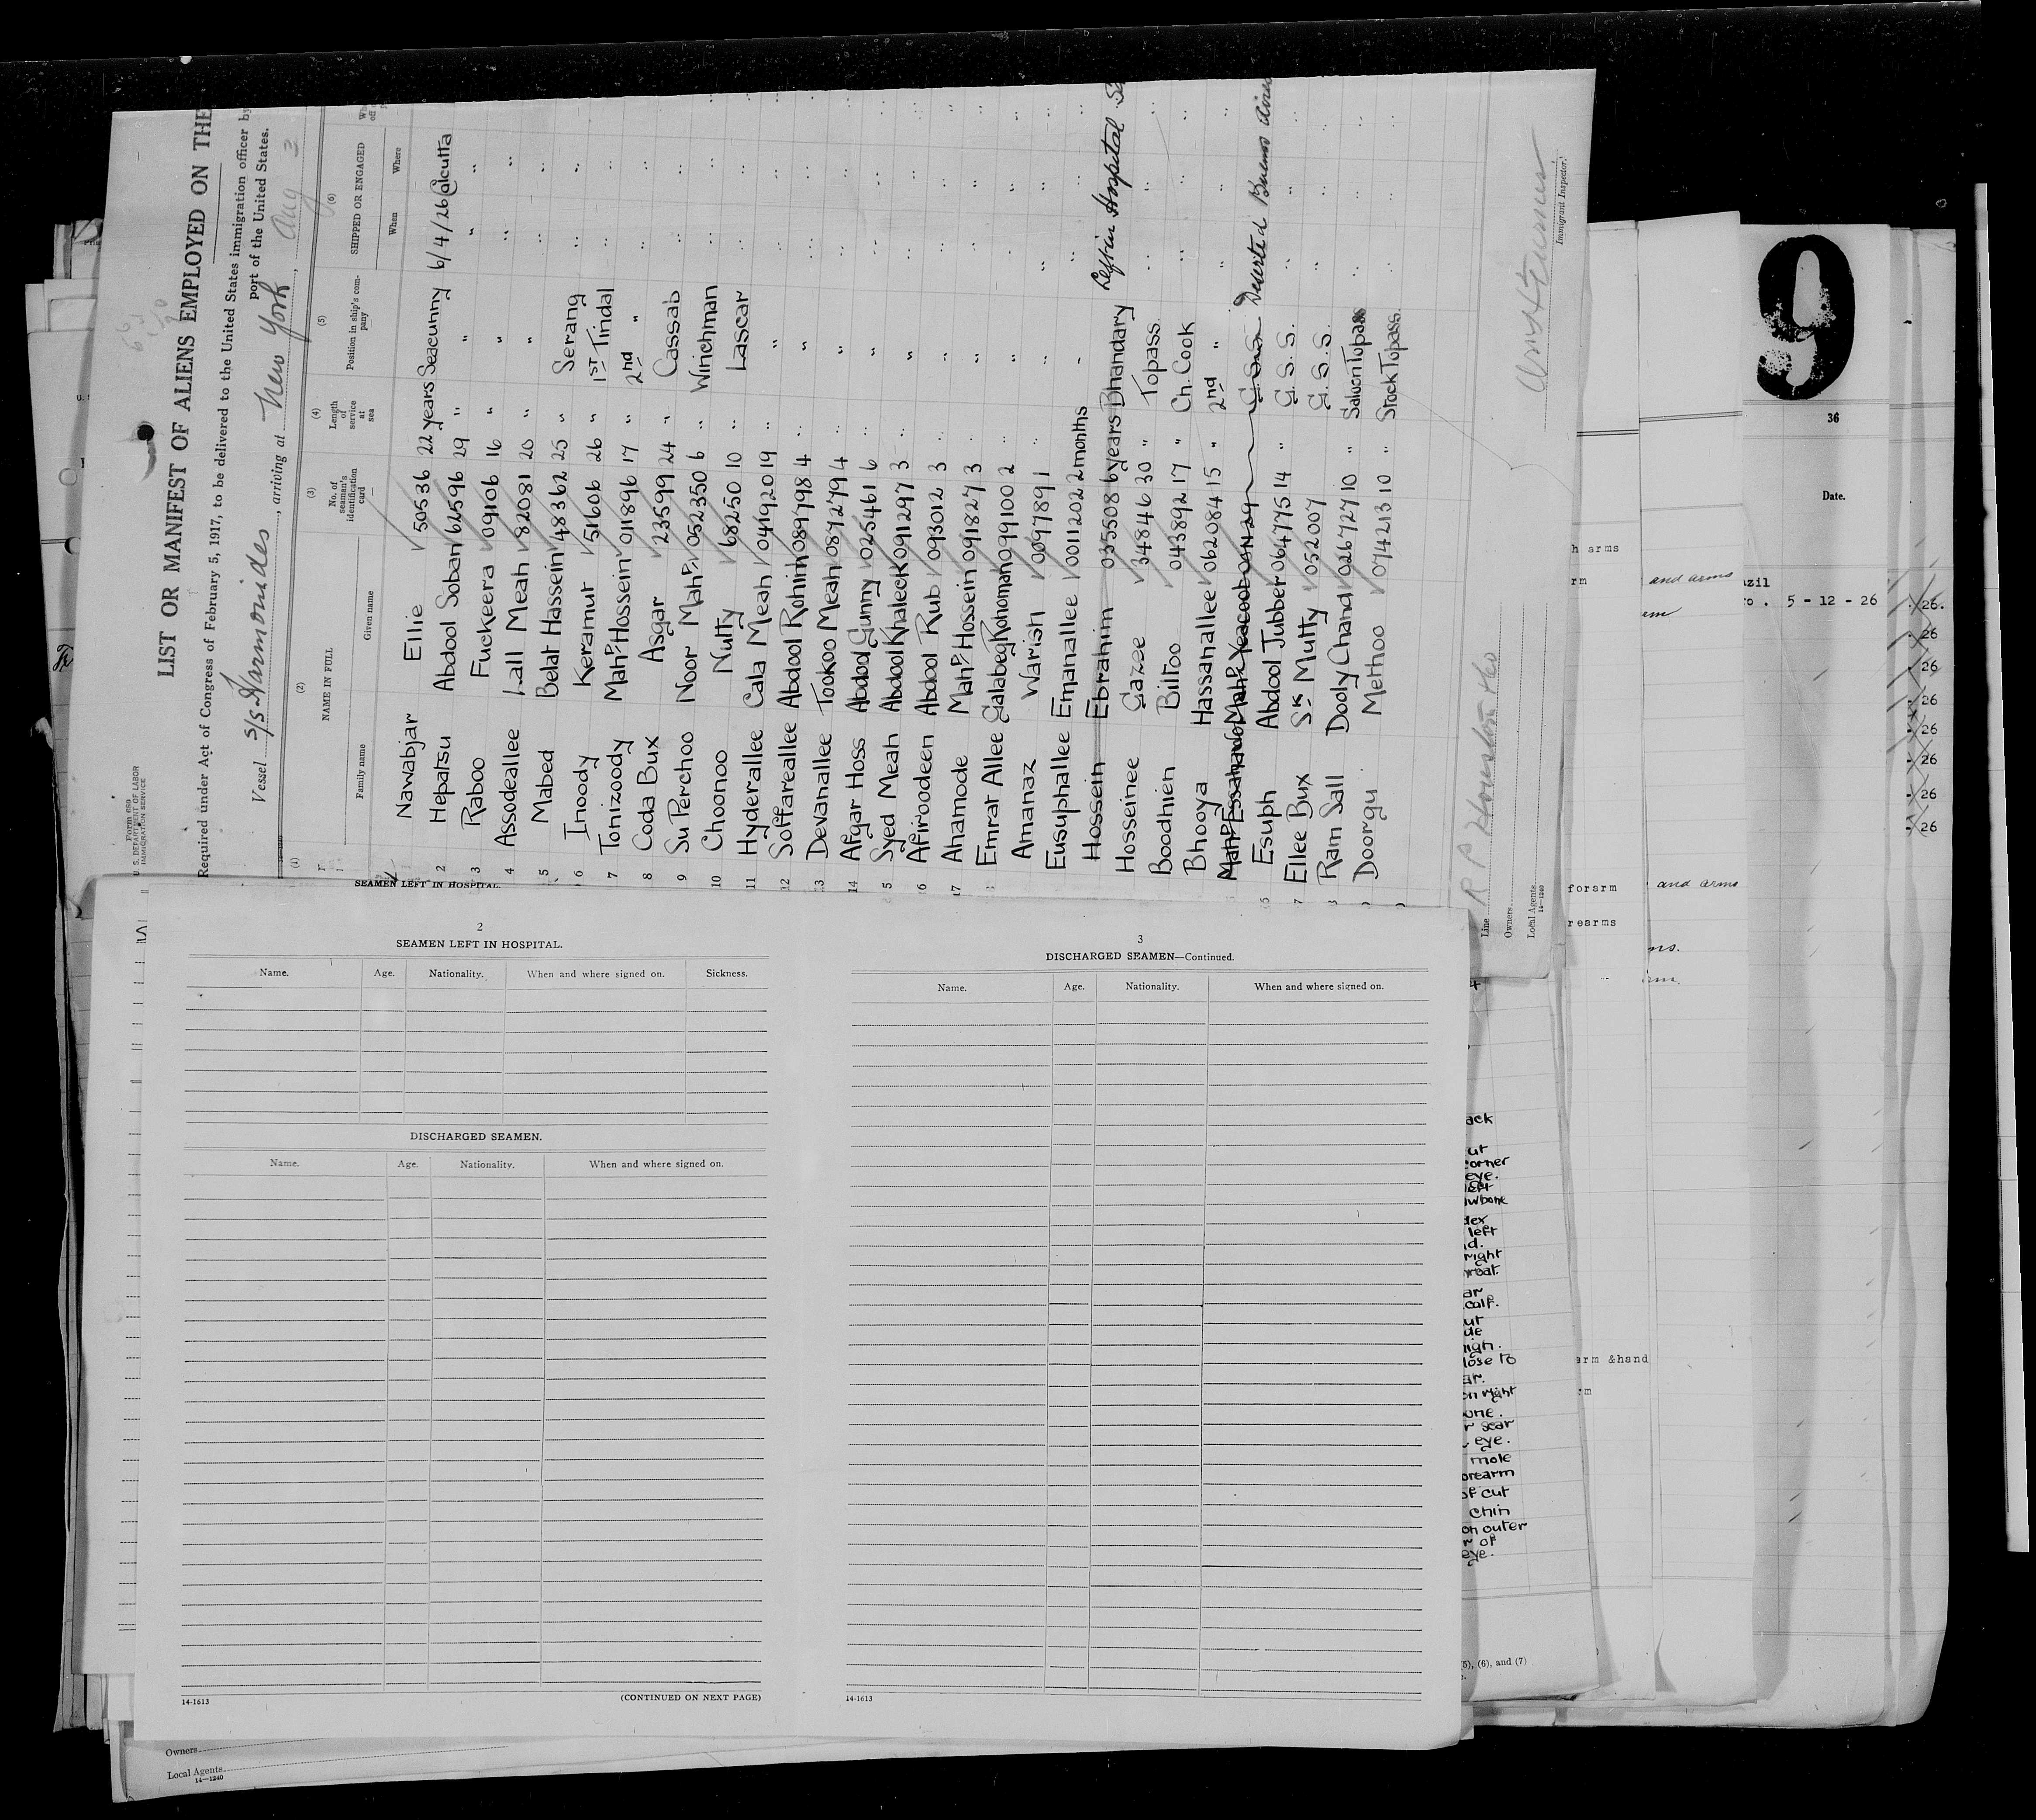 U. S. DEPARTMENT OF LABOR
IMMIGRATION SERVICE
LIST OR MANIFEST OF ALIENS EMPLOYED ON THE
Required under Act of Congress of February 5, 1917, to be delivered to the United States immigration officer by
port of the United States.
Vessel S/S Harmonides, arriving at New York, Aug 3
(1) (2) (3) (4) (5) (6)
NAME IN FULL No. of seaman's identification card Length of service at sea Position in ship's company SHIPPED OR ENGAGED
Family name Given name When Where
Nawabjar Ellie 50536 22 years Seacunny 6/4/26 Calcutta
2 Hepatsu Abdool Soban 62596 29 " " " "
3 Raboo Fuckeera 09106 16 " " " "
4 Assodeallee Lall Meah 82081 20 " " " "
5 Mabed Belat Hassein 48362 25 " Serang " "
6 Inoody Keramut 51606 26 " 1st Tindal " "
7 Tonizoody Mahd Hossein 011896 17 " 2nd " " "
8 Coda Bux Asgar 23599 24 " Cassab " "
9 Su Perchoo Noor Mahd 052350 6 " Winchman " "
10 Choonoo Nutty 68250 10 " Lascar " "
11 Hyderallee Cala Meah 041920 19 " " " "
12 Soffareallee Abdool Rohim 089798 4 " " " "
13 Devanallee Tookoo Meah 087279 4 " " " "
14 Afgar Hoss Abdool Gunny 025461 6 " " " "
5 Syed Meah Abdool Khaleck 091297 3 " " " "
6 Afiroodeen Abdool Rub 093012 3 " " " "
17 Ahamode Mahd Hossein 091827 3 " " " "
Emrat Allee Galabeg Rohoman 099100 2 " " " "
Amanaz Warish 0097891 " " " "
Eusuphallee Emanallee 0011202 2 months " " "
Hossein Ebrahim 035508 6 years Bhandary Left in Hospital
Hosseinee Gazee 34846 30 " Topass " "
Boodhien Biltoo 043892 17 " Ch. Cook " "
Bhooya Hassanallee 062084 15 " 2nd " " "
Mahd Yeacoob G.S.S. Deserted Buenos Aires
Esuph Abdool Jubber 064775 14 " G. S. S. " "
7 Ellee Bux Sk Mutty 052007 G. S. S. " "
Ram Sall Dooly Chand 026727 10 " Saloon Topass " "
Doorgu Methoo 074213 10 " Stock Topass " "
Line R P Houston & Co
Owners
Local Agents
14-1240
Immigrant Inspector.
SEAMEN LEFT IN HOSPITAL.
2
SEAMEN LEFT IN HOSPITAL.
Name. Age. Nationality. When and where signed on. Sickness.
DISCHARGED SEAMEN.
Name. Age. Nationality. When and where signed on.
14-1613 (CONTINUED ON NEXT PAGE)
3
DISCHARGED SEAMEN—Continued.
Name. Age. Nationality. When and where signed on.
14-1613
Owners
Local Agents
14-1240
9
36
Date.
h arms
rm
and arms
zil
5 - 12 - 26
26.
26
26
26
26
26
26
26
forarm
and arms
rearms
ack
ut
corner
eye.
left
wbone
dex
left
d.
right
hroat.
ar
calf.
ut
de
igh.
lose to
ar.
on right
one.
r scar
eye.
mole
orearm
of cut
chin
on outer
r of
eye.
arm &hand
(5), (6), and (7)